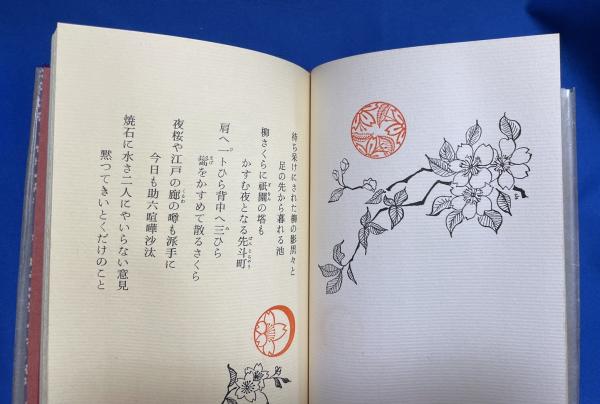 待ち呆けにされた柳の影黒々と
足の先から暮れる池
柳さくらに祇園の塔も
かすむ夜となる先斗町
肩へ一トひら背中へ三ひら
鬢をかすめて散るさくら
夜桜や江戸の廓の噂も派手に
今日も助六喧嘩沙汰
焼石に水さ二人にやいらない意見
黙つてきいとくだけのこと